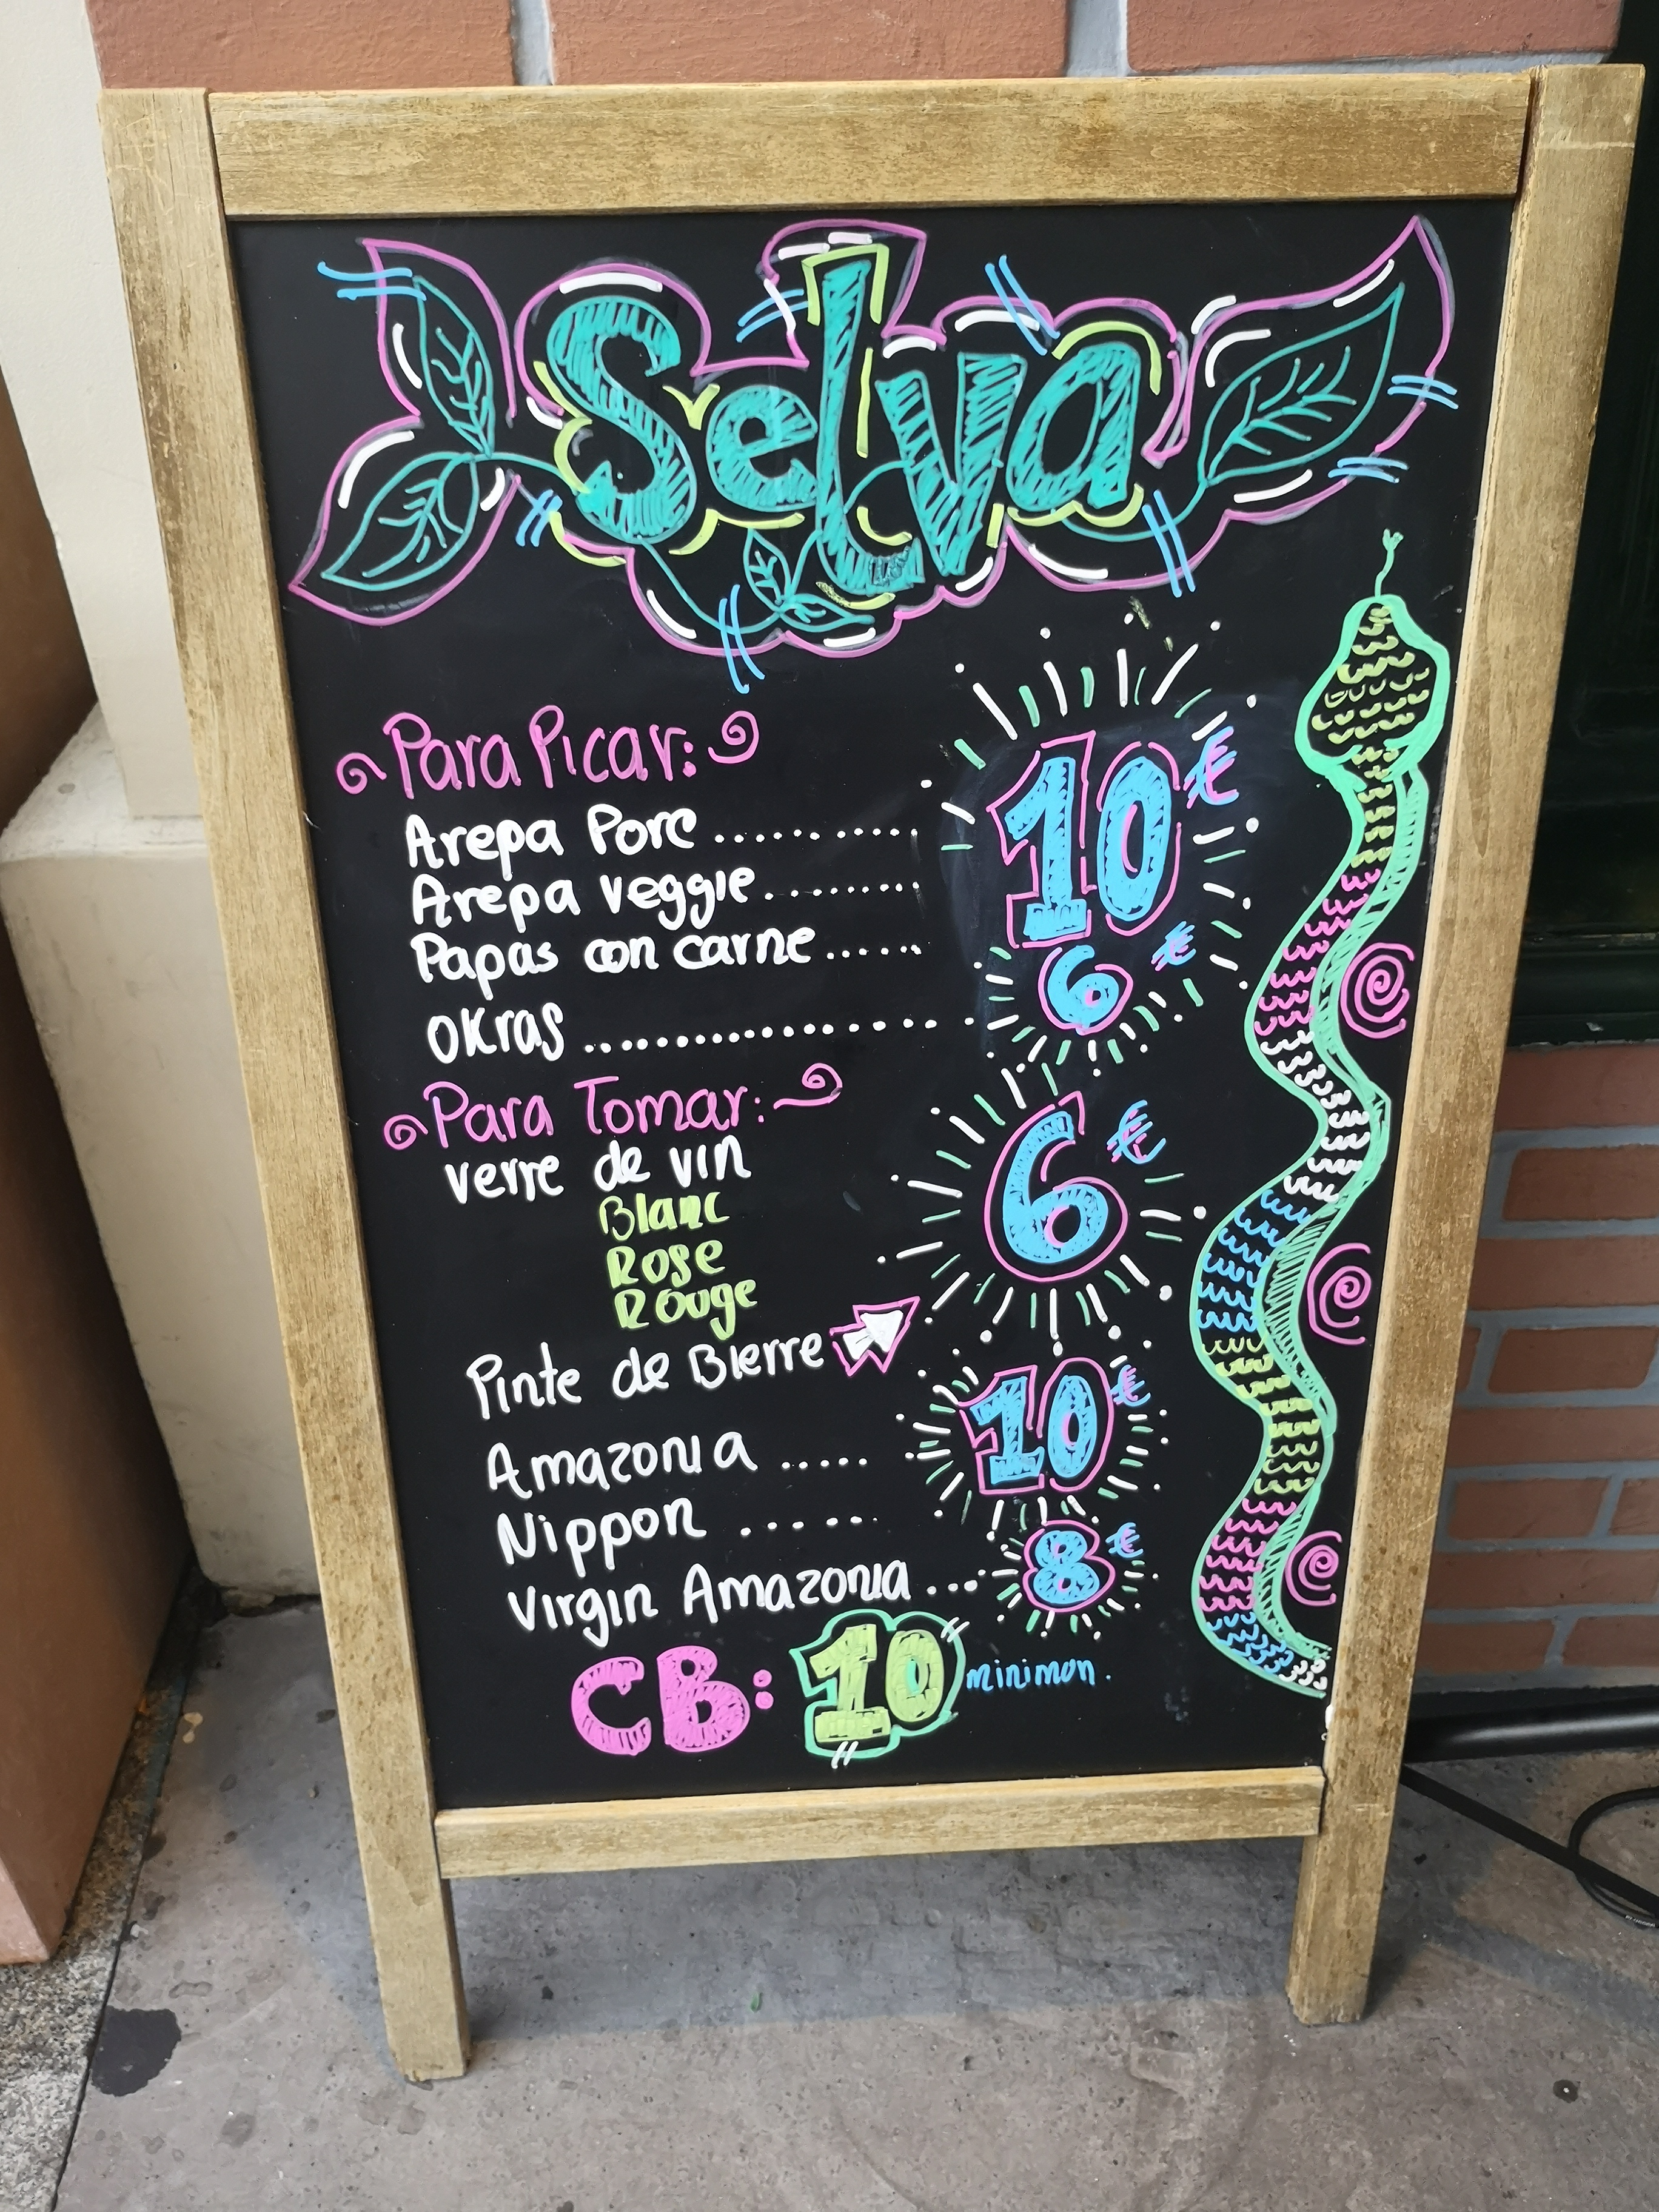 Selva
Para Picar:
Arepa Porc ........... 10€
Arepa veggie.........
Papas con carne ......
Okras .................. 6€
Para Tomar:
verre de vin
Blanc 6€
Rose
Rouge
Pinte de Bierre
Amazonia ..... 10€
Nippon ......
Virgin Amazonia .... 8€
CB: 10 minimon.